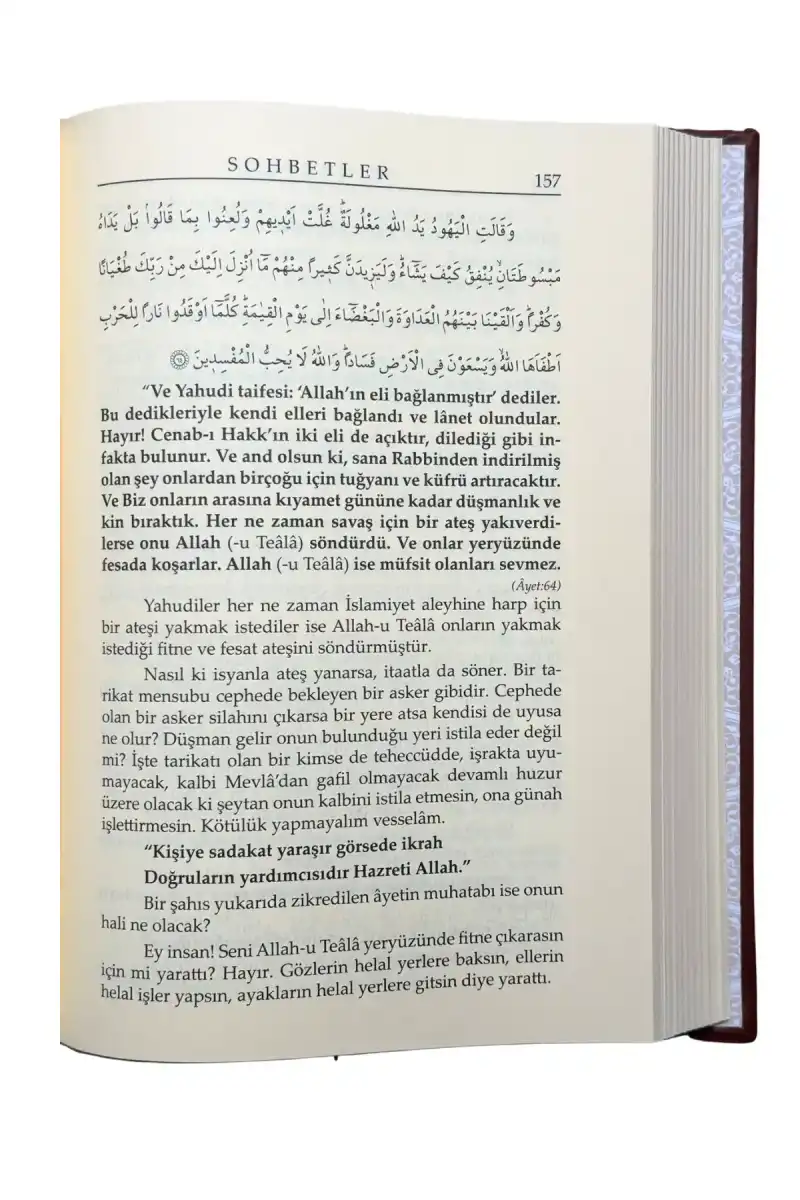 SOHBETLER
157
وَقَالَتِ الْيَهُودُ يَدُ اللّٰهِ مَغْلُولَةٌۜ غُلَّتْ اَيْد۪يهِمْ وَلُعِنُوا بِمَا قَالُواۢ بَلْ يَدَاهُ
مَبْسُوطَتَانِۙ يُنْفِقُ كَيْفَ يَشَٓاءُۜ وَلَيَز۪يدَنَّ كَث۪يراً مِنْهُمْ مَٓا اُنْزِلَ اِلَيْكَ مِنْ رَبِّكَ طُغْيَاناً
وَكُفْراًۜ وَاَلْقَيْنَا بَيْنَهُمُ الْعَدَاوَةَ وَالْبَغْضَٓاءَ اِلٰى يَوْمِ الْقِيٰمَةِۜ كُلَّمَٓا اَوْقَدُوا نَاراً لِلْحَرْبِ
اَطْفَاَهَا اللّٰهُۙ وَيَسْعَوْنَ فِي الْاَرْضِ فَسَاداًۜ وَاللّٰهُ لَا يُحِبُّ الْمُفْسِد۪ينَ ﴿٦٤﴾
“Ve Yahudi taifesi: ‘Allah’ın eli bağlanmıştır’ dediler.
Bu dedikleriyle kendi elleri bağlandı ve lânet olundular.
Hayır! Cenab-ı Hakk’ın iki eli de açıktır, dilediği gibi in-
fakta bulunur. Ve and olsun ki, sana Rabbinden indirilmiş
olan şey onlardan birçoğu için tuğyanı ve küfrü artıracaktır.
Ve Biz onların arasına kıyamet gününe kadar düşmanlık ve
kin bıraktık. Her ne zaman savaş için bir ateş yakıverdi-
lerse onu Allah (-u Teâlâ) söndürdü. Ve onlar yeryüzünde
fesada koşarlar. Allah (-u Teâlâ) ise müfsit olanları sevmez.
(Âyet:64)
Yahudiler her ne zaman İslamiyet aleyhine harp için
bir ateşi yakmak istediler ise Allah-u Teâlâ onların yakmak
istediği fitne ve fesat ateşini söndürmüştür.
Nasıl ki isyanla ateş yanarsa, itaatla da söner. Bir ta-
rikat mensubu cephede bekleyen bir asker gibidir. Cephede
olan bir asker silahını çıkarsa bir yere atsa kendisi de uyusa
ne olur? Düşman gelir onun bulunduğu yeri istila eder değil
mi? İşte tarikatı olan bir kimse de teheccüdde, işrakta uyu-
mayacak, kalbi Mevlâ’dan gafil olmayacak devamlı huzur
üzere olacak ki şeytan onun kalbini istila etmesin, ona günah
işlettirmesin. Kötülük yapmayalım vesselâm.
“Kişiye sadakat yaraşır görsede ikrah
Doğruların yardımcısıdır Hazreti Allah.”
Bir şahıs yukarıda zikredilen âyetin muhatabı ise onun
hali ne olacak?
Ey insan! Seni Allah-u Teâlâ yeryüzünde fitne çıkarasın
için mi yarattı? Hayır. Gözlerin helal yerlere baksın, ellerin
helal işler yapsın, ayakların helal yerlere gitsin diye yarattı.